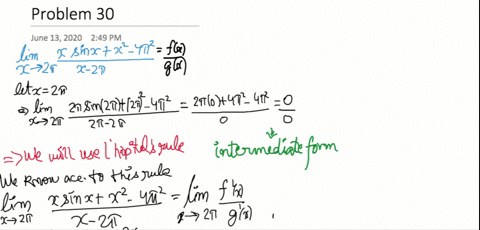 Problem 30
June 13, 2020 2:49 PM
lim x→2π (x sinx + x² - 4π²)/(x-2π) = f(x)/g(x)
let x = 2π
⇒ lim x→2π (2π sin(2π) + (2π)² - 4π²)/(2π-2π) = (2π(0) + 4π² - 4π²)/0 = 0/0
⇒ We will use l'hopitals rule intermediate form
We know acc. to this rule
lim x→2π (x sinx + x² - 4π²)/(x-2π) = lim x→2π f'(x)/g'(x)